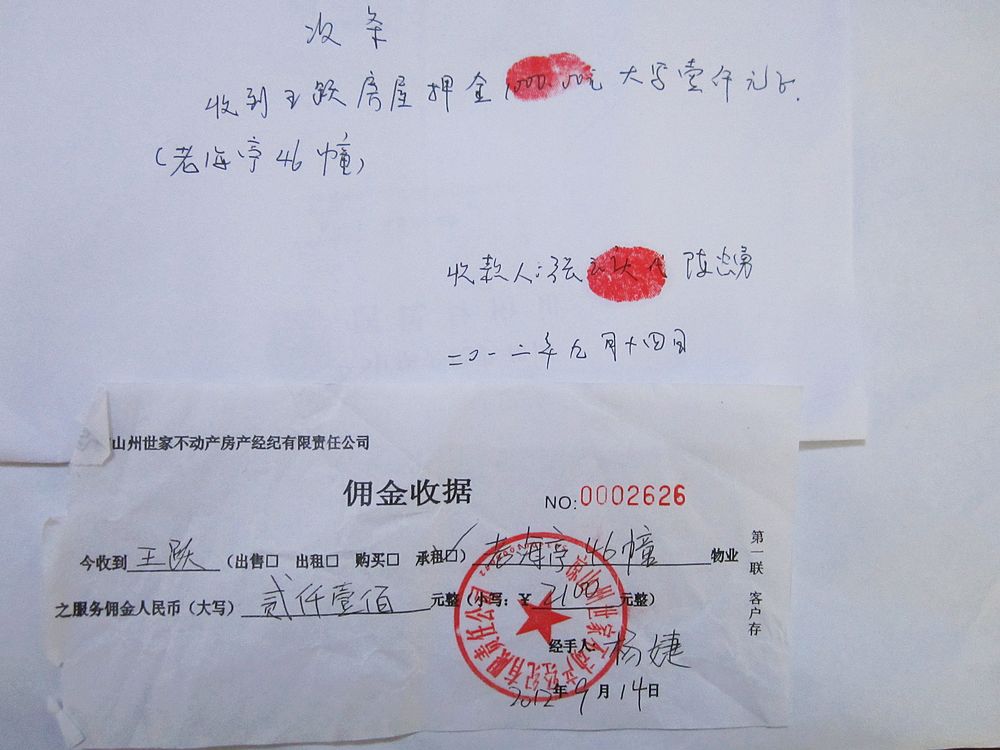 收条
收到王跃房屋押金1000.00元 大写壹仟元正.
(老海亭46幢)
收款人:张 代 陈忠勇
二0一二年九月十四日
山州世家不动产房产经纪有限责任公司
佣金收据 NO:0002626
今收到王跃(出售□ 出租□ 购买□ 承租☑)老海亭46幢物业
之服务佣金人民币(大写)贰仟壹佰元整(小写:¥2100元整)
经手人:杨婕
2012年9月14日
第一联 客户存
山州世家不动产经纪有限责任公司